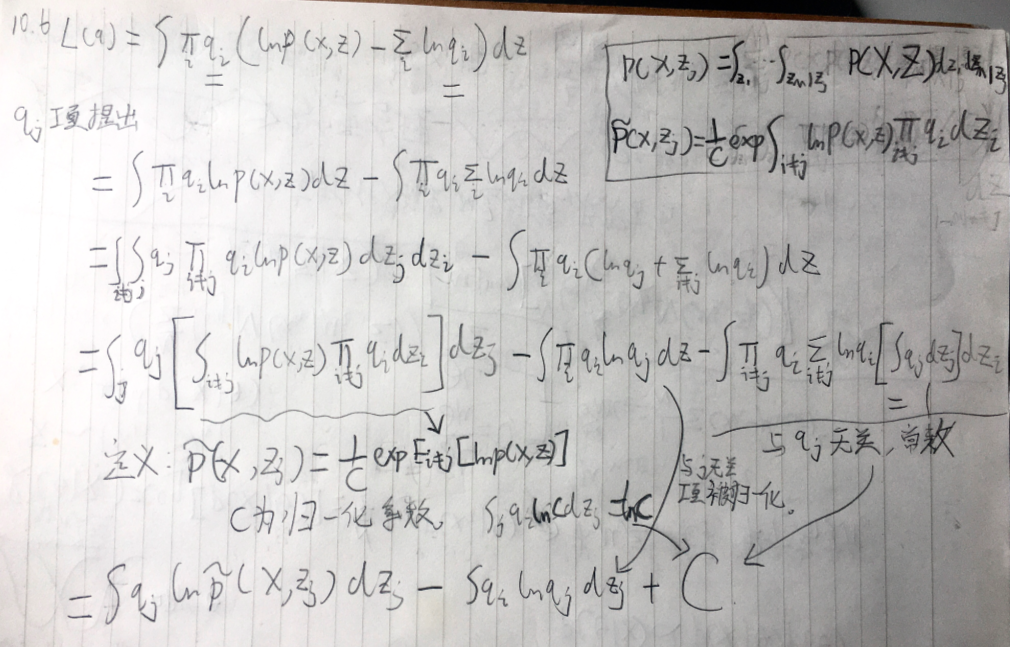 10.6 L(q) = ∫ ∏_i q_i (ln p(x,z) − Σ_i ln q_i) dz
p(X,z_j) = ∫_{z_1} ⋯ ∫_{z_n|z_j} P(X,Z) dz_1
p̃(x,z_j) = 1/C exp ∫_{i≠j} ln p(x,z) ∏_{i≠j} q_i dz_i
q_j 项提出
= ∫ ∏_i q_i ln p(x,z) dz − ∫ ∏_i q_i Σ_i ln q_i dz
= ∫_{i≠j} ∫_j q_j ∏_{i≠j} q_i ln p(x,z) dz_j dz_i − ∫ ∏_i q_i (ln q_j + Σ_{i≠j} ln q_i) dz
= ∫_j q_j [∫_{i≠j} ln p(x,z) ∏_{i≠j} q_i dz_i] dz_j − ∫ ∏_i q_i ln q_j dz − ∫ ∏_{i≠j} q_i Σ_{i≠j} ln q_i [∫ q_j dz_j] dz_i
= 1
与 q_j 无关,常数
定义: p̃(x,z_j) = 1/C exp E_{i≠j}[ln p(x,z)]
与j无关
项被归一化。
C为归一化系数。 ∫_j q_i ln C dz_j = ln C
= ∫ q_j ln p̃(X,z_j) dz_j − ∫ q_i ln q_j dz_j + C